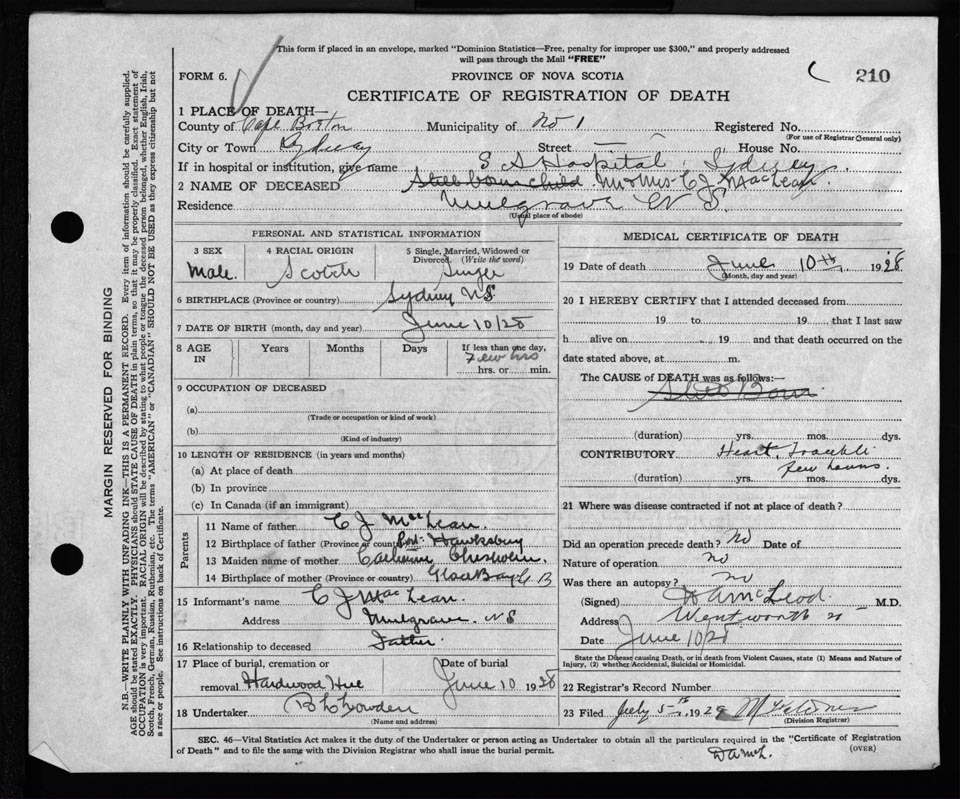 This form if placed in an envelope, marked "Dominion Statistics—Free, penalty for improper use $300," and properly addressed
will pass through the Mail "FREE"
FORM 6.
PROVINCE OF NOVA SCOTIA
210
CERTIFICATE OF REGISTRATION OF DEATH
1 PLACE OF DEATH—
County of Cape Breton Municipality of No 1 Registered No.
(For use of Registrar Generał only)
City or Town Sydney Street — House No.
If in hospital or institution, give name S A Hospital, Sydney.
2 NAME OF DECEASED Still born child. Mr & Mrs C J MacLean.
Residence Mulgrave N S.
(Usual place of abode)
PERSONAL AND STATISTICAL INFORMATION
3 SEX
Male.
4 RACIAL ORIGIN
Scotch
5 Single, Married, Widowed or
Divorced. (Write the word)
Single
6 BIRTHPLACE (Province or country) Sydney NS
7 DATE OF BIRTH (month, day and year) June 10/28
8 AGE
IN
Years
Months
Days
If less than one day,
Few hrs
hrs. or min.
9 OCCUPATION OF DECEASED
(a)
(Trade or occupation or kind of work)
(b)
(Kind of industry)
10 LENGTH OF RESIDENCE (in years and months)
(a) At place of death
(b) In province
(c) In Canada (if an immigrant)
Parents
11 Name of father C J MacLean.
12 Birthplace of father (Province or country) Port Hawksbury
13 Maiden name of mother Catherine
14 Birthplace of mother (Province or country) Glace Bay C B
15 Informant's name C J MacLean.
Address Mulgrave NS
16 Relationship to deceased Father
17 Place of burial, cremation or
removal Hardwood Hill
Date of burial
June 10 1928
18 Undertaker
(Name and address)
MEDICAL CERTIFICATE OF DEATH
19 Date of death June 10th, 1928
(Month, day and year)
20 I HEREBY CERTIFY that I attended deceased from
19 to 19 that I last saw
h alive on 19 and that death occurred on the
date stated above, at m.
The CAUSE of DEATH was as follows:—
Still Born
(duration) yrs. mos. dys.
CONTRIBUTORY Heart Trouble
few hours.
(duration) yrs. mos. dys.
21 Where was disease contracted if not at place of death?
Did an operation precede death? No Date of
Nature of operation no
Was there an autopsy? no
(Signed) D A McLeod. M.D.
Address Wentworth
Date June 10/28
State the Disease causing Death, or in death from Violent Causes, state (1) Means and Nature of
Injury, (2) whether Accidental, Suicidal or Homicidal.
22 Registrar's Record Number
23 Filed July 5th, 1928
(Division Registrar)
SEC. 46—Vital Statistics Act makes it the duty of the Undertaker or person acting as Undertaker to obtain all the particulars required in the "Certificate of Registration
of Death" and to file the same with the Division Registrar who shall issue the burial permit.
(OVER)
MARGIN RESERVED FOR BINDING
N.B.—WRITE PLAINLY WITH UNFADING INK—THIS IS A PERMANENT RECORD. Every item of information should be carefully supplied.
AGE should be stated EXACTLY. PHYSICIANS should STATE CAUSE OF DEATH in plain terms, so that it may be properly classified. Exact statement of
OCCUPATION is very important. RACIAL ORIGIN will be described by stating to what people or tongue the deceased person belonged, whether English, Irish,
Scotch, French, German, Russian, Ruthenian, etc. The terms "AMERICAN" or "CANADIAN" SHOULD NOT BE USED as they express citizenship but not
a race or people. See instructions on back of Certificate.